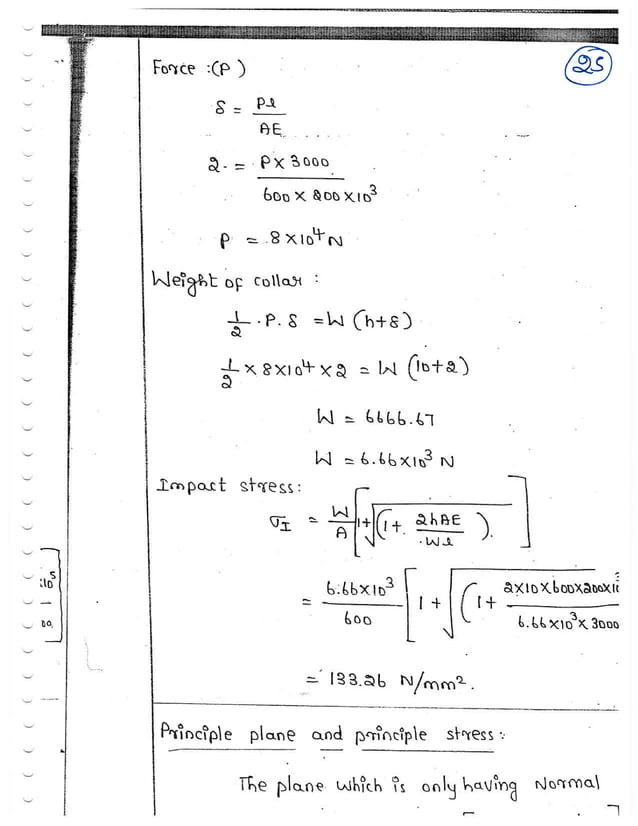 25
Force :(P)
δ = Pl / AE
2. = P × 3000 / 600 × 200 × 10³
P = 8 × 10⁴ N
Weight of collar :
1/2 . P. δ = W (h+δ)
1/2 × 8×10⁴ × 2 = W (10+2)
W = 6666.67
W = 6.66×10³ N
Impact stress:
σI = W/A [1+√(1+ 2hAE / Wl )]
= 6.66×10³ / 600 [1 + √(1+ 2×10×600×200×10 / 6.66×10³×3000
= 133.26 N/mm².
Principle plane and principle stress :
The plane which is only having Normal